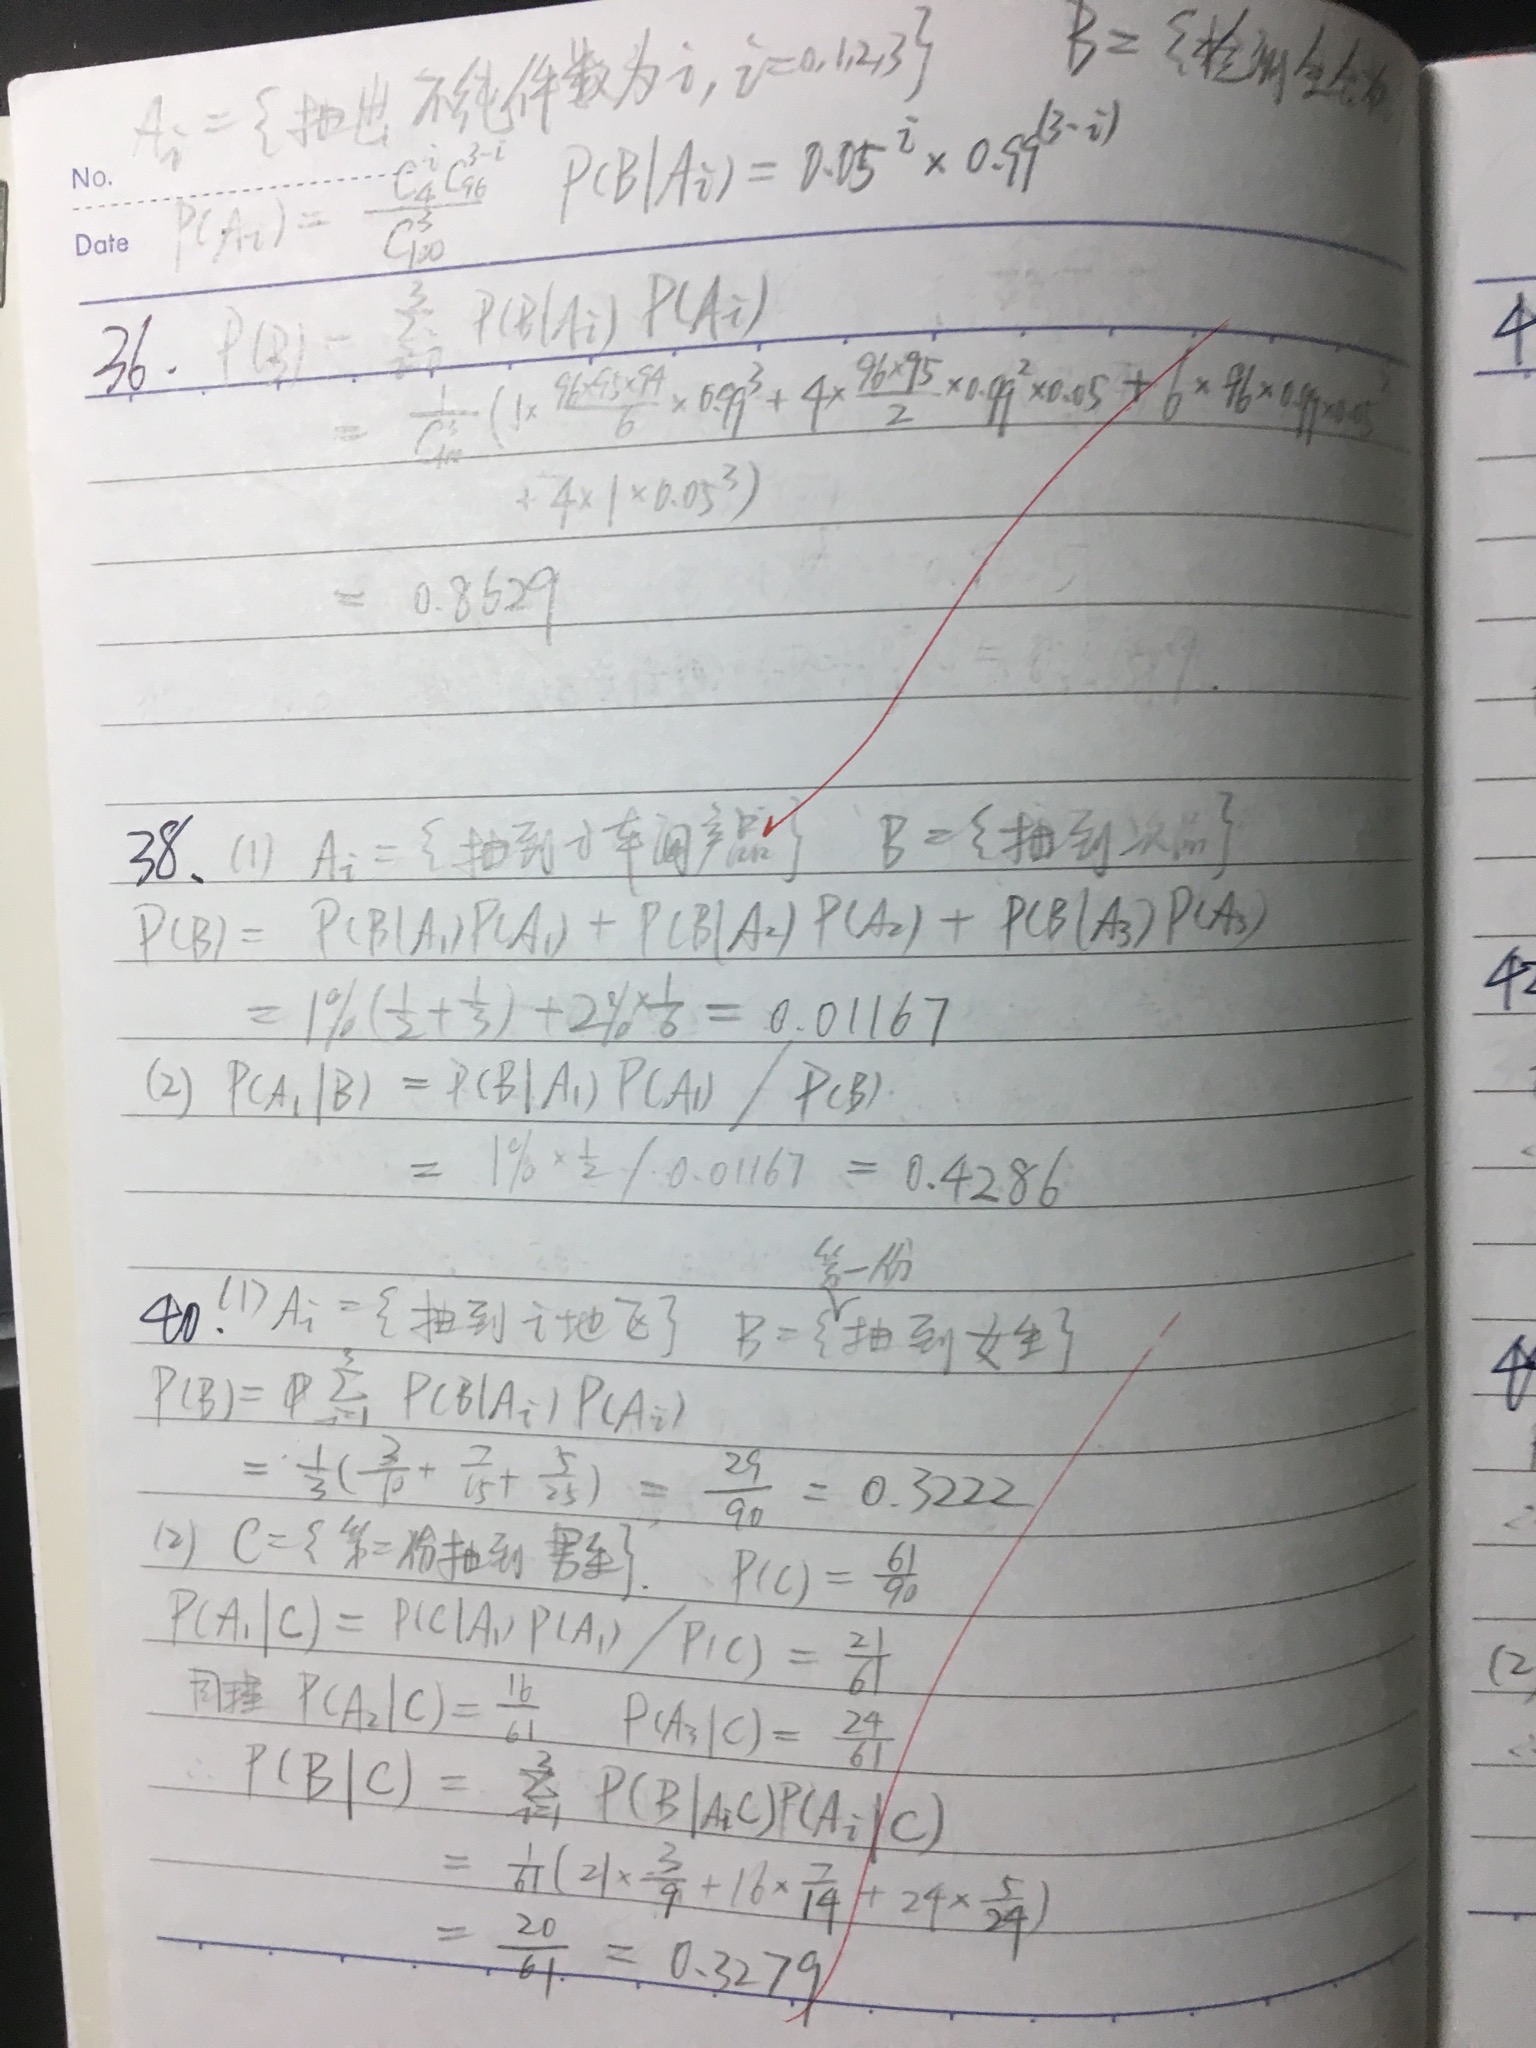 A_i = {抽出不纯件数为i, i=0,1,2,3} B = {检测
No.
P(A_i) = \frac{C_4^i C_{96}^{3-i}}{C_{100}^3} P(B|A_i) = 0.05^i × 0.99^{(3-i)}
Date
36. P(B) = \sum_{i=0}^{3} P(B|A_i) P(A_i)
= \frac{1}{C_{100}^3} (1× \frac{96×95×94}{6} × 0.99^3 + 4× \frac{96×95}{2} ×0.99^2×0.05 + 6×96×0.99×0.05^2
+ 4×1×0.05^3)
= 0.8629
38、(1) A_i = {抽到i车间产品} B = {抽到次品}
P(B) = P(B|A_1)P(A_1) + P(B|A_2) P(A_2) + P(B|A_3) P(A_3)
= 1%(\frac{1}{2}+\frac{1}{3}) + 2%×\frac{1}{6} = 0.01167
(2) P(A_1|B) = P(B|A_1) P(A_1) / P(B)
= 1%×\frac{1}{2} / 0.01167 = 0.4286
第一份
40. (1) A_i = {抽到i地区} B = {抽到女生}
P(B) = \sum_{i=1}^{3} P(B|A_i) P(A_i)
= \frac{1}{3}(\frac{3}{10} + \frac{7}{15} + \frac{5}{25}) = \frac{29}{90} = 0.3222
(2) C = {第二份抽到男生}. P(C) = \frac{61}{90}
P(A_1|C) = P(C|A_1) P(A_1) / P(C) = \frac{21}{61}
同理 P(A_2|C) = \frac{16}{61} P(A_3|C) = \frac{24}{61}
∴ P(B|C) = \sum_{i=1}^{3} P(B|A_iC)P(A_i|C)
= \frac{1}{61}(21×\frac{3}{9} + 16×\frac{7}{14} + 24×\frac{5}{24})
= \frac{20}{61} = 0.3279